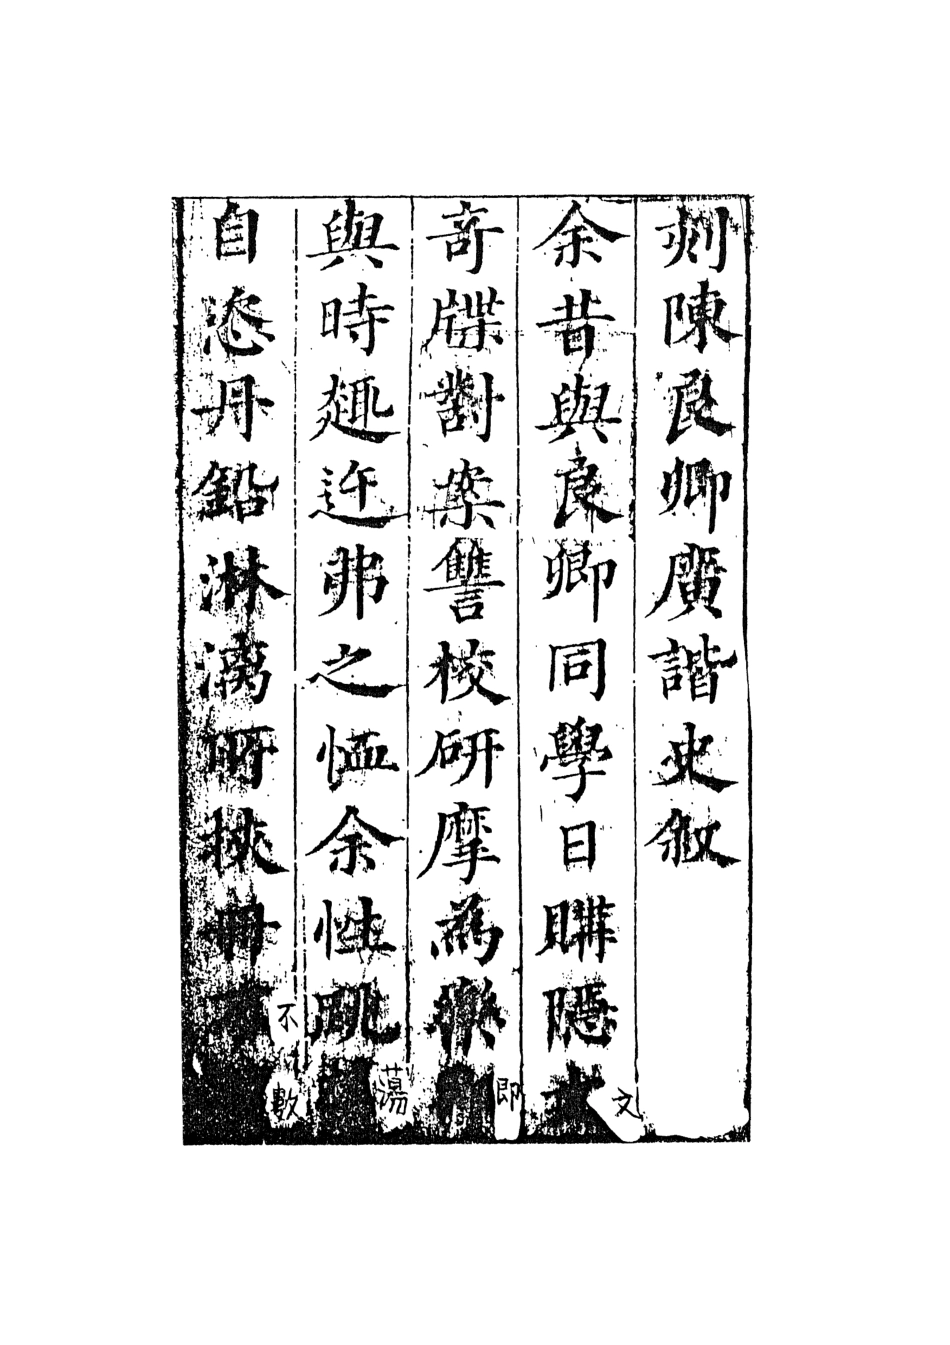 刻陳良卿廣諧史敘
余昔與良卿同學日購隱文
奇牒對案讐校研摩為樂即
與時趣迕弗之恤余性跳蕩
自恣丹鉛淋漓所挾冊不數